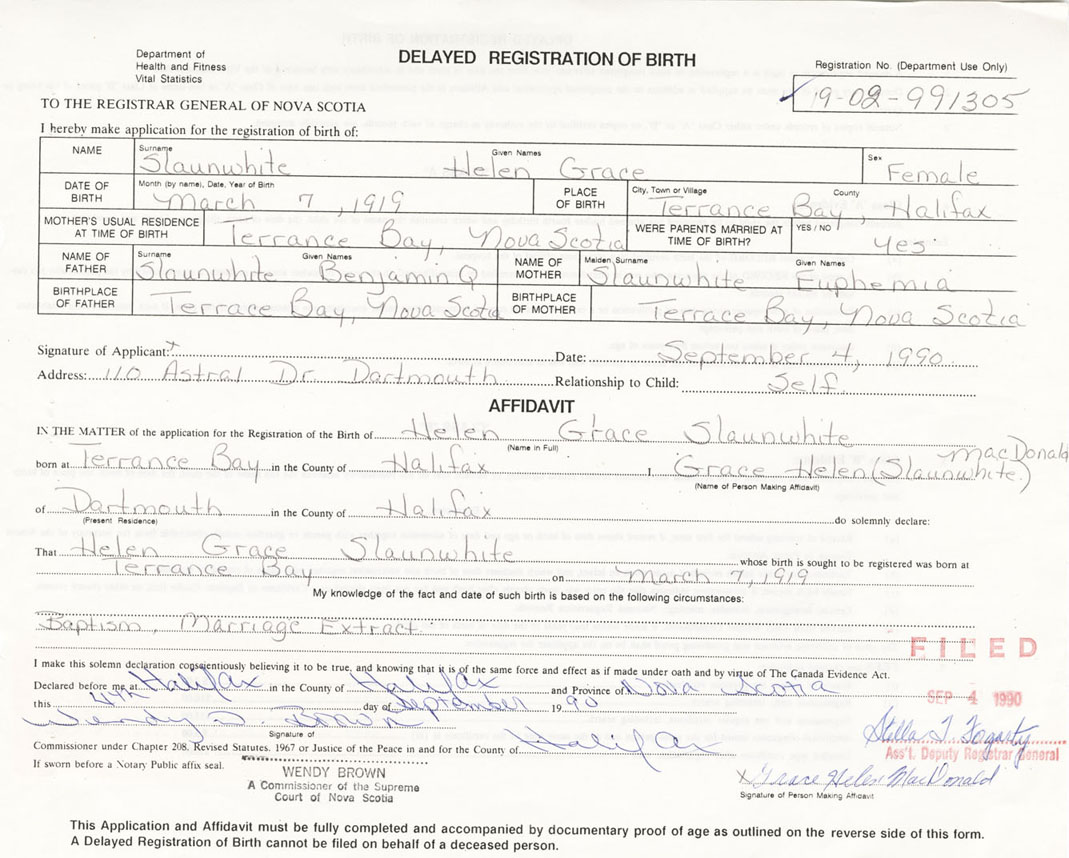 Department of
Health and Fitness
Vital Statistics
DELAYED REGISTRATION OF BIRTH
Registration No. (Department Use Only)
19-02-991305
TO THE REGISTRAR GENERAL OF NOVA SCOTIA
I hereby make application for the registration of birth of:
NAME Surname Slaunwhite Given Names Helen Grace Sex Female
DATE OF BIRTH Month (by name), Date, Year of Birth March 7, 1919 PLACE OF BIRTH City, Town or Village County Terrance Bay, Halifax
MOTHER'S USUAL RESIDENCE AT TIME OF BIRTH Terrance Bay, Nova Scotia WERE PARENTS MARRIED AT TIME OF BIRTH? YES / NO Yes
NAME OF FATHER Surname Slaunwhite Given Names Benjamin Q NAME OF MOTHER Maiden Surname Slaunwhite Given Names Euphemia
BIRTHPLACE OF FATHER Terrace Bay, Nova Scotia BIRTHPLACE OF MOTHER Terrace Bay, Nova Scotia
Signature of Applicant: Date: September 4, 1990
Address: 110 Astral Dr. Dartmouth Relationship to Child: Self
AFFIDAVIT
IN THE MATTER of the application for the Registration of the Birth of Helen Grace Slaunwhite
(Name in Full)
MacDonald
born at Terrance Bay in the County of Halifax I, Grace Helen (Slaunwhite)
(Name of Person Making Affidavit)
of Dartmouth in the County of Halifax do solemnly declare:
(Present Residence)
That Helen Grace Slaunwhite whose birth is sought to be registered was born at
Terrance Bay on March 7, 1919
My knowledge of the fact and date of such birth is based on the following circumstances:
Baptism, Marriage Extract
FILED
I make this solemn declaration conscientiously believing it to be true, and knowing that it is of the same force and effect as if made under oath and by virtue of The Canada Evidence Act.
Declared before me at Halifax in the County of Halifax and Province of Nova Scotia
this 4th day of September 19 90
SEP 4 1990
Wendy J. Brown
Signature of
Stella T. Fogarty
Commissioner under Chapter 208, Revised Statutes, 1967 or Justice of the Peace in and for the County of Halifax
Ass't. Deputy Registrar General
If sworn before a Notary Public affix seal.
WENDY BROWN
A Commissioner of the Supreme
Court of Nova Scotia
x Grace Helen MacDonald
Signature of Person Making Affidavit
This Application and Affidavit must be fully completed and accompanied by documentary proof of age as outlined on the reverse side of this form.
A Delayed Registration of Birth cannot be filed on behalf of a deceased person.